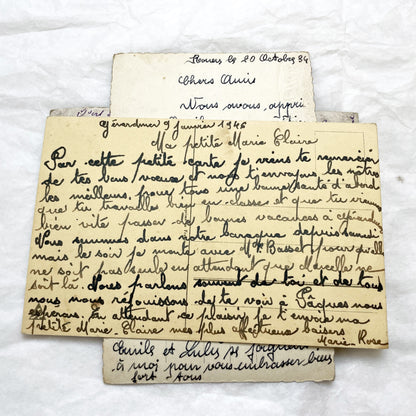 le 20 Octobre 34
Chers Amis
Nous avons appris
Gérardmer 9 Janvier 1946
Ma petite Marie Claire
Par cette petite carte je viens te remercier
de tes bons voeux et nous t'envoyons les nôtres
les meilleurs, pour tous une bonne santé d'abord
que tu travailles bien en classe et que tu viennes
bien vite passer de bonnes vacances à Gérardmer
Nous sommes dans notre baraque depuis samedi
mais le soir je monte avec Mme Basset pour qu'elle
ne soit pas seule en attendant que Marcelle ne
soit là. Nous parlons souvent de toi et de tous
nous nous réjouissons de te voir à Pâques nous
espérons. En attendant ce plaisir je t'envoie ma
petite Marie Claire mes plus affectueux baisers
Marie Rose
et Lulu se joignent
à moi pour vous embrasser bien
fort tous